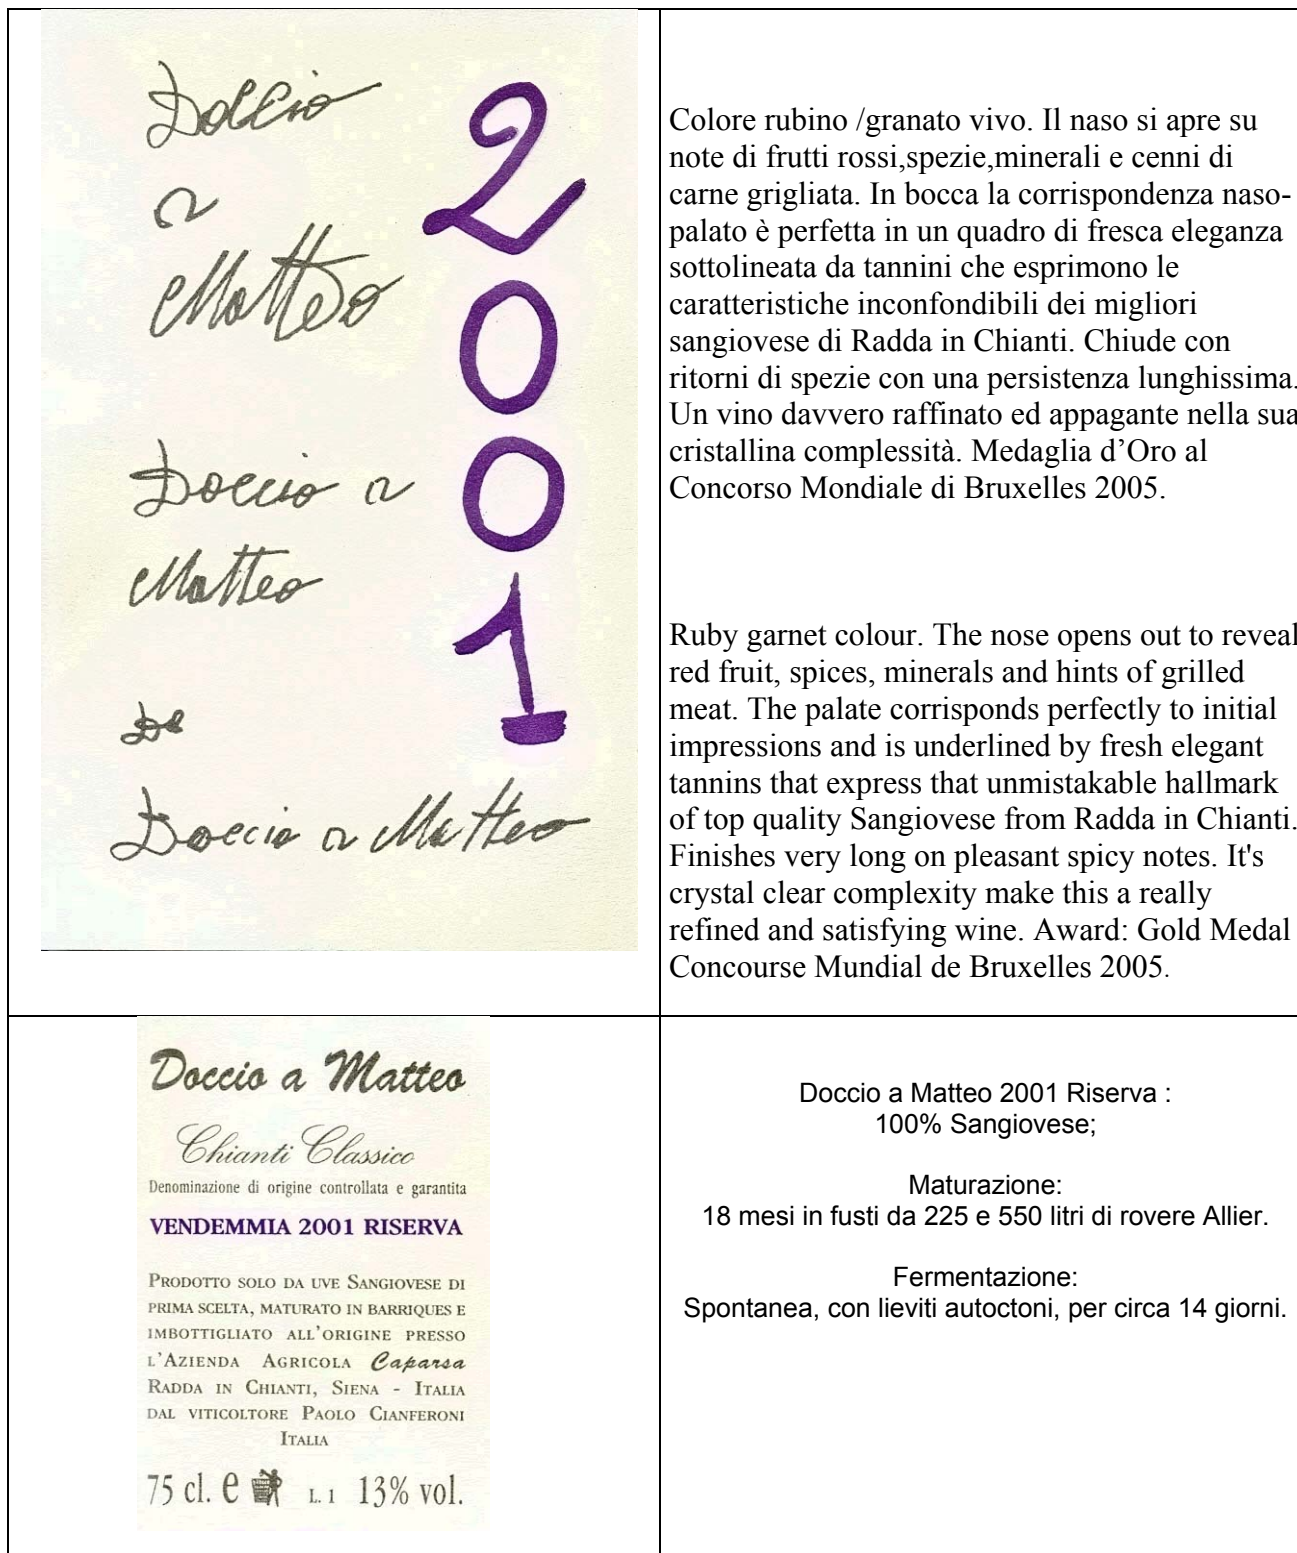 Doccio
a
Matteo
2001
Doccio a
Matteo
De
Doccio a Matteo
Colore rubino /granato vivo. Il naso si apre su
note di frutti rossi,spezie,minerali e cenni di
carne grigliata. In bocca la corrispondenza naso-
palato è perfetta in un quadro di fresca eleganza
sottolineata da tannini che esprimono le
caratteristiche inconfondibili dei migliori
sangiovese di Radda in Chianti. Chiude con
ritorni di spezie con una persistenza lunghissima.
Un vino davvero raffinato ed appagante nella sua
cristallina complessità. Medaglia d’Oro al
Concorso Mondiale di Bruxelles 2005.
Ruby garnet colour. The nose opens out to reveal
red fruit, spices, minerals and hints of grilled
meat. The palate corrisponds perfectly to initial
impressions and is underlined by fresh elegant
tannins that express that unmistakable hallmark
of top quality Sangiovese from Radda in Chianti.
Finishes very long on pleasant spicy notes. It's
crystal clear complexity make this a really
refined and satisfying wine. Award: Gold Medal
Concourse Mundial de Bruxelles 2005.
Doccio a Matteo
Chianti Classico
Denominazione di origine controllata e garantita
VENDEMMIA 2001 RISERVA
PRODOTTO SOLO DA UVE SANGIOVESE DI
PRIMA SCELTA, MATURATO IN BARRIQUES E
IMBOTTIGLIATO ALL'ORIGINE PRESSO
L'AZIENDA AGRICOLA Caparsa
RADDA IN CHIANTI, SIENA - ITALIA
DAL VITICOLTORE PAOLO CIANFERONI
ITALIA
75 cl. e L. 1 13% vol.
Doccio a Matteo 2001 Riserva :
100% Sangiovese;
Maturazione:
18 mesi in fusti da 225 e 550 litri di rovere Allier.
Fermentazione:
Spontanea, con lieviti autoctoni, per circa 14 giorni.